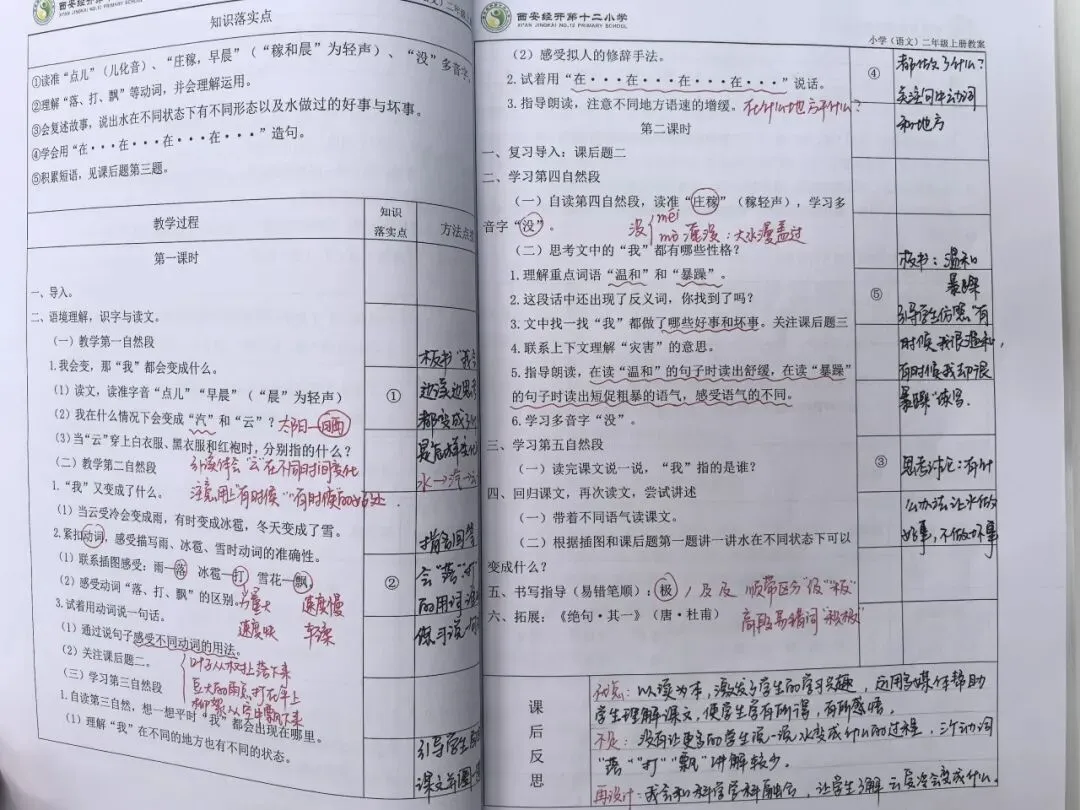 西安经开第十
（语文）二年级上
知识落实点
①读准“点儿”（儿化音）、“庄稼，早晨”（“稼和晨”为轻声）、“没”多音字。
②理解“落、打、飘”等动词，并会理解运用。
③会复述故事，说出水在不同状态下有不同形态以及水做过的好事与坏事。
④学会用“在···在···在···在···”造句。
⑤积累短语，见课后题第三题。
教学过程
知识
落实点
方法点
第一课时
一、导入。
二、语境理解，识字与读文。
（一）教学第一自然段
1.我会变，那“我”都会变成什么。
板书“我会
（1）读文，读准字音“点儿”“早晨”（“晨”为轻声）
①
边读边思
（2）我在什么情况下会变成“汽”和“云”？太阳一晒
都变成了什
（3）当“云”穿上白衣服、黑衣服和红袍时，分别指的什么？
是怎样变化
（二）教学第二自然段
引导体会“云”在不同时间变化
水→汽→云
1.“我”又变成了什么。
注意用上“有时候”“有时候”
（1）当云受冷会变成雨，有时变成冰雹，冬天变成了雪。
2.紧扣动词，感受描写雨、冰雹、雪时动词的准确性。
（1）联系插图感受：雨—落 冰雹—打 雪花—飘。
②
会“落”“打
（2）感受动词“落、打、飘”的区别。
力量大 速度慢
的用词准
速度快 轻柔
3.试着用动词说一句话。
练习说一句
（1）通过说句子感受不同动词的用法。
（2）关注课后题二。
叶子从树上落下来
（三）学习第三自然段
巨大的雨点打在伞上
柳絮从空中飘下来
1.自读第三自然，想一想平时“我”都会出现在哪里。
（1）理解“我”在不同的地方也有不同的状态。
引导学生
课文插图
西安经开第十二小学
XI'AN JINGKAI NO.12 PRIMARY SCHOOL
小学（语文）二年级上册教案
（2）感受拟人的修辞手法。
④
都做了什么？
2.试着用“在···在···在···在···”说话。
关注句中动词
3.指导朗读，注意不同地方语速的增缓。在什么地方干什么？
和地方
第二课时
一、复习导入：课后题二
二、学习第四自然段
（一）自读第四自然段，读准“庄稼”（稼轻声），学习多
音字“没”。
没 méi
mò 淹没：大水漫盖过
（二）思考文中的“我”都有哪些性格？
板书：温和
1.理解重点词语“温和”和“暴躁”。
暴躁
2.这段话中还出现了反义词，你找到了吗？
⑤
3.文中找一找“我”都做了哪些好事和坏事。关注课后题三
引导学生仿照“有
4.联系上下文理解“灾害”的意思。
时候我很温和，
5.指导朗读，在读“温和”的句子时读出舒缓，在读“暴躁”
有时候我却很
的句子时读出短促粗暴的语气，感受语气的不同。
暴躁”练写。
6.学习多音字“没”。
三、学习第五自然段
（一）读完课文说一说，“我”指的是谁？
③
思考讨论：有什
四、回归课文，再次读文，尝试讲述
么办法让水做
（一）带着不同语气读课文。
好事，不做坏事
（二）根据插图和课后题第一题讲一讲水在不同状态下可以
变成什么？
五、书写指导（易错笔顺）：极 丿 及 及 顺带区分“级”“极”
六、拓展：《绝句·其一》（唐·杜甫）
高段易错词“积极”
课后反思
优点：以读为本，激发了学生的学习兴趣，运用多媒体帮助
学生理解课文，使学生学有所得，有所感悟，
不足：没有让更多的学生说一说水变成什么的过程，三个动词
“落”“打”“飘”讲解较少。
再设计：我会和科学学科融合，让学生了解云受冷会变成什么。